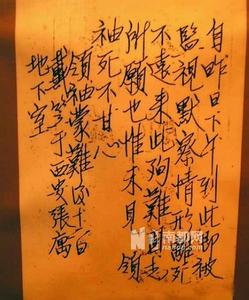 自昨日下午到此即被
監視默察情形離死
不遠來此殉難志
所願也惟未見領
袖死不甘心
領袖蒙難後十二日
戴笠于西安張寓
地下室
南都网